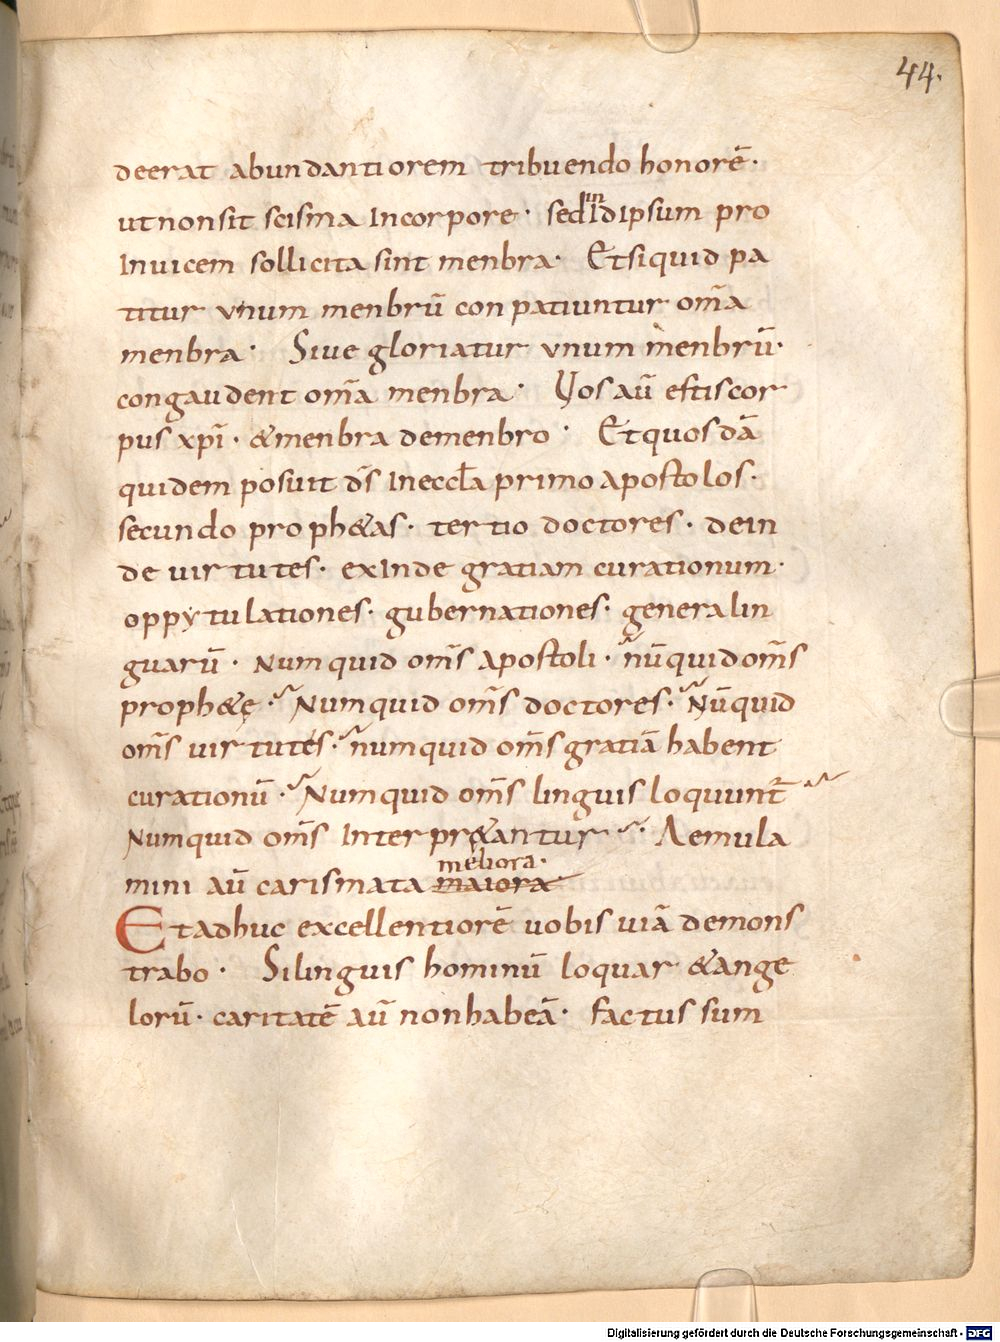 44.
deerat abundantiorem tribuendo honorē·
ut non sit scisma Incorpore· sed in Idipsum pro
Inuicem sollicita sint menbra· Et siquid pa
titur vnum menbrū con patiuntur om̄a
menbra· Siue gloriatur vnum menbrū·
congaudent om̄a menbra· Vos aū estis cor
pus xp̄i· & menbra demenbro· Et quosdā
quidem posuit d̄s In eccl̄a primo apostolos·
secundo proph&as· tertio doctores· dein
de uirtutes· exInde gratiam curationum·
oppytulationes· gubernationes· genera lin
guarū· Numquid om̄s apostoli· nūquid om̄s
proph&ę· Numquid om̄s doctores· Nūquid
om̄s uirtutes· numquid om̄s gratiā habent
curationū· Numquid om̄s linguis loquunt̄
Numquid om̄s Interpr&antur· Aemula
meliora·
mini aū carismata maiora·
Et adhuc excellentiorē uobis uiā demons
trabo· Si linguis hominū loquar & ange
lorū· caritatē aū non habeā· factus sum
Digitalisierung gefördert durch die Deutsche Forschungsgemeinschaft - DFG